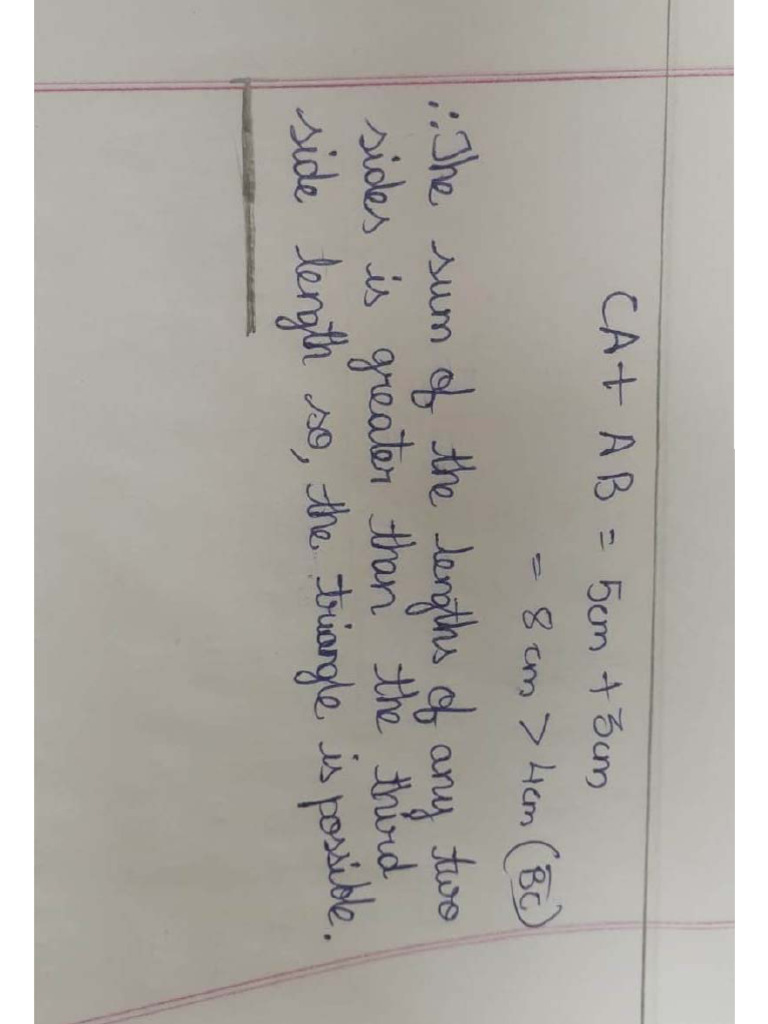 CA + AB = 5cm + 3cm
= 8 cm > 4cm (BC)
∴ The sum of the lengths of any two
sides is greater than the third
side length so, the triangle is possible.